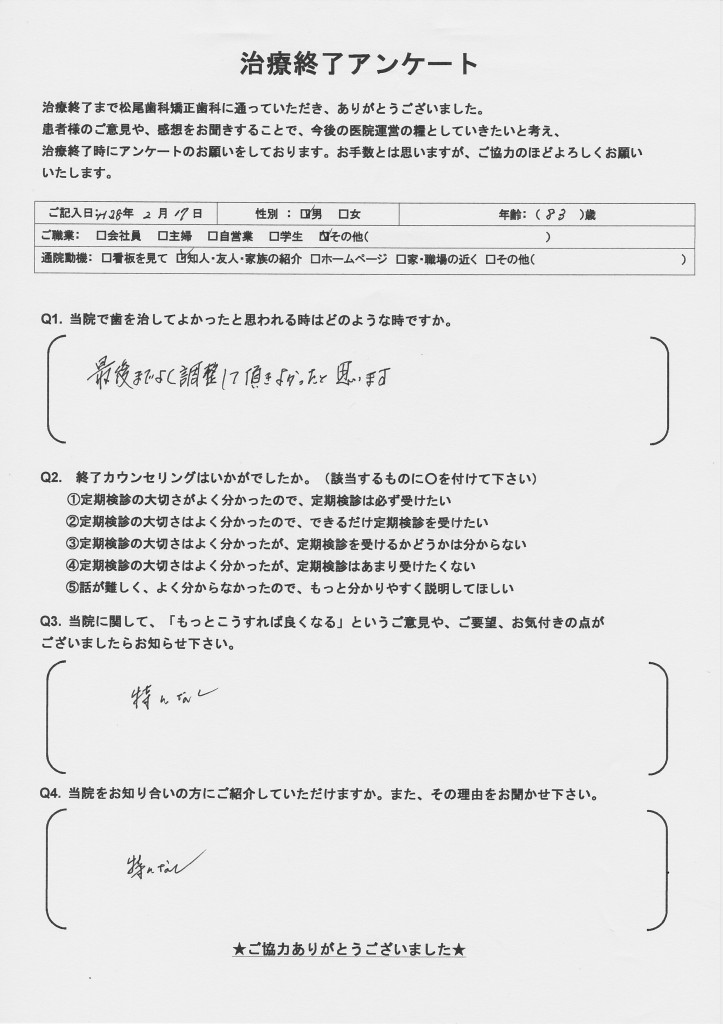 治療終了アンケート
治療終了まで松尾歯科矯正歯科に通っていただき、ありがとうございました。
患者様のご意見や、感想をお聞きすることで、今後の医院運営の糧としていきたいと考え、
治療終了時にアンケートのお願いをしております。お手数とは思いますが、ご協力のほどよろしくお願い
いたします。
ご記入日:H28年 2月 17日 性別 : ☑男 □女 年齢:( 83 )歳
ご職業: □会社員 □主婦 □自営業 □学生 ☑その他( )
通院動機: □看板を見て ☑知人・友人・家族の紹介 □ホームページ □家・職場の近く □その他( )
Q1. 当院で歯を治してよかったと思われる時はどのような時ですか。
最後までよく調整して頂きよかったと思います
Q2. 終了カウンセリングはいかがでしたか。（該当するものに〇を付けて下さい）
①定期検診の大切さがよく分かったので、定期検診は必ず受けたい
②定期検診の大切さはよく分かったので、できるだけ定期検診を受けたい
③定期検診の大切さはよく分かったが、定期検診を受けるかどうかは分からない
④定期検診の大切さはよく分かったが、定期検診はあまり受けたくない
⑤話が難しく、よく分からなかったので、もっと分かりやすく説明してほしい
Q3. 当院に関して、「もっとこうすれば良くなる」というご意見や、ご要望、お気付きの点が
ございましたらお知らせ下さい。
特になし
Q4. 当院をお知り合いの方にご紹介していただけますか。また、その理由をお聞かせ下さい。
特になし
★ご協力ありがとうございました★